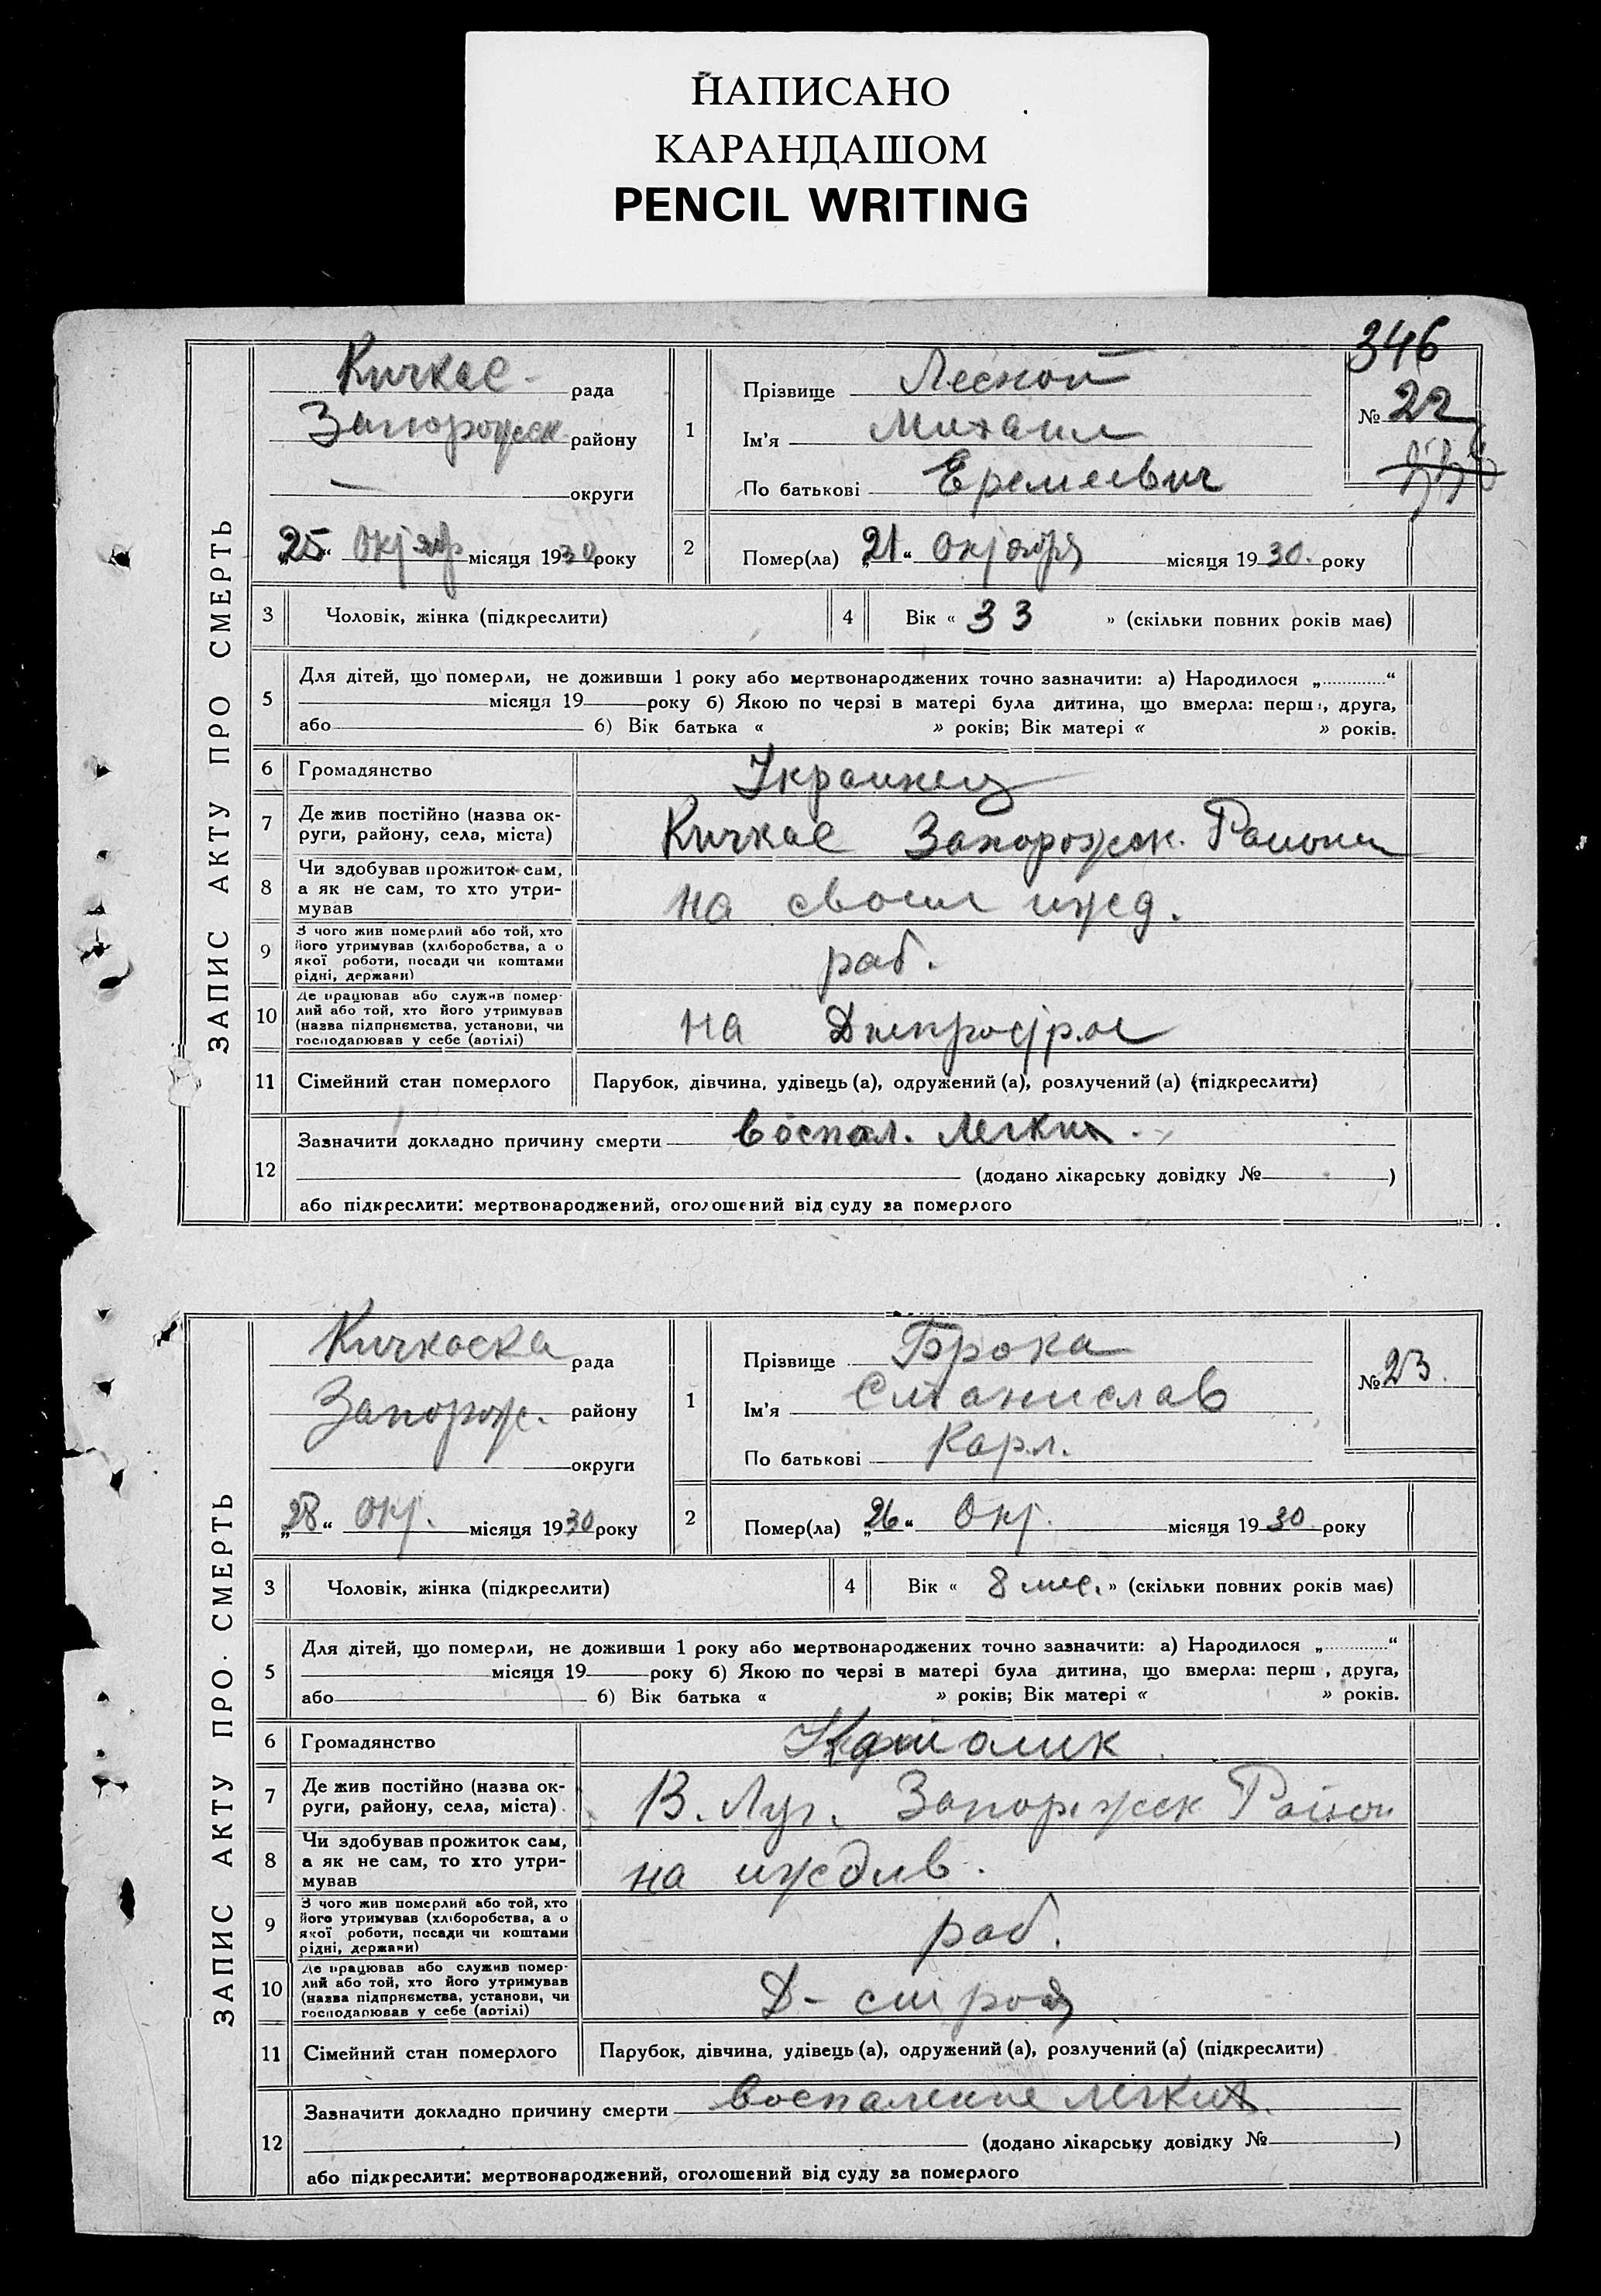 НАПИСАНО
КАРАНДАШОМ
PENCIL WRITING
346
ЗАПИС АКТУ ПРО СМЕРТЬ
Кичкас рада
Запорожск района району
округи
„25“ Октябр місяця 1930 року
1 Прізвище Лесной
Ім'я Михаил
По батькові Еремеевич
№ 22
2 Помер(ла) „21“ Октября місяця 1930. року
3 Чоловік, жінка (підкреслити)
4 Вік « 33 » (скільки повних років має)
5 Для дітей, що померли, не доживши 1 року або мертвонароджених точно зазначити: а) Народилося „............“
місяця 19 року б) Якою по черзі в матері була дитина, що вмерла: перш, друга,
або б) Вік батька « » років; Вік матері « » років.
6 Громадянство Украинец
7 Де жив постійно (назва ок-
руги, району, села, міста) Кичкас Запорожск. Района
8 Чи здобував прожиток сам,
а як не сам, то хто утри-
мував на своем ижд.
9 З чого жив померлий або той, хто
його утримував (хліборобства, а о
якої роботи, посади чи коштами
рідні, держави) раб.
10 Де працював або служив помер-
лий або той, хто його утримував
(назва підприємства, установи, чи
господарював у себе (артілі) на Днепрострое
11 Сімейний стан померлого Парубок, дівчина, удівець (а), одружений (а), розлучений (а) (підкреслити)
12 Зазначити докладно причину смерти воспал. легких.
(додано лікарську довідку № )
або підкреслити: мертвонароджений, оголошений від суду за померлого
ЗАПИС АКТУ ПРО СМЕРТЬ
Кичкаска рада
Запорож. району
округи
„28“ Окт. місяця 1930 року
1 Прізвище Брока
Ім'я Станислав
По батькові Карл.
№ 23.
2 Помер(ла) „26“ Окт. місяця 1930 року
3 Чоловік, жінка (підкреслити)
4 Вік « 8 мес. » (скільки повних років має)
5 Для дітей, що померли, не доживши 1 року або мертвонароджених точно зазначити: а) Народилося „............“
місяця 19 року б) Якою по черзі в матері була дитина, що вмерла: перш, друга,
або б) Вік батька « » років; Вік матері « » років.
6 Громадянство Католик
7 Де жив постійно (назва ок-
руги, району, села, міста) В. Луг. Запорожск Район
8 Чи здобував прожиток сам,
а як не сам, то хто утри-
мував на иждив.
9 З чого жив померлий або той, хто
його утримував (хліборобства, а о
якої роботи, посади чи коштами
рідні, держави) раб.
10 Де працював або служив помер-
лий або той, хто його утримував
(назва підприємства, установи, чи
господарював у себе (артілі) Д-строй
11 Сімейний стан померлого Парубок, дівчина, удівець (а), одружений (а), розлучений (а) (підкреслити)
12 Зазначити докладно причину смерти воспаление легких.
(додано лікарську довідку № )
або підкреслити: мертвонароджений, оголошений від суду за померлого